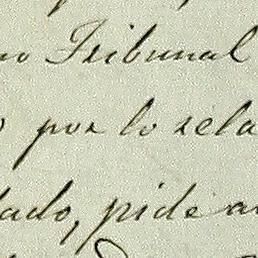 no Tribunal
o por lo rela
tado, pide an